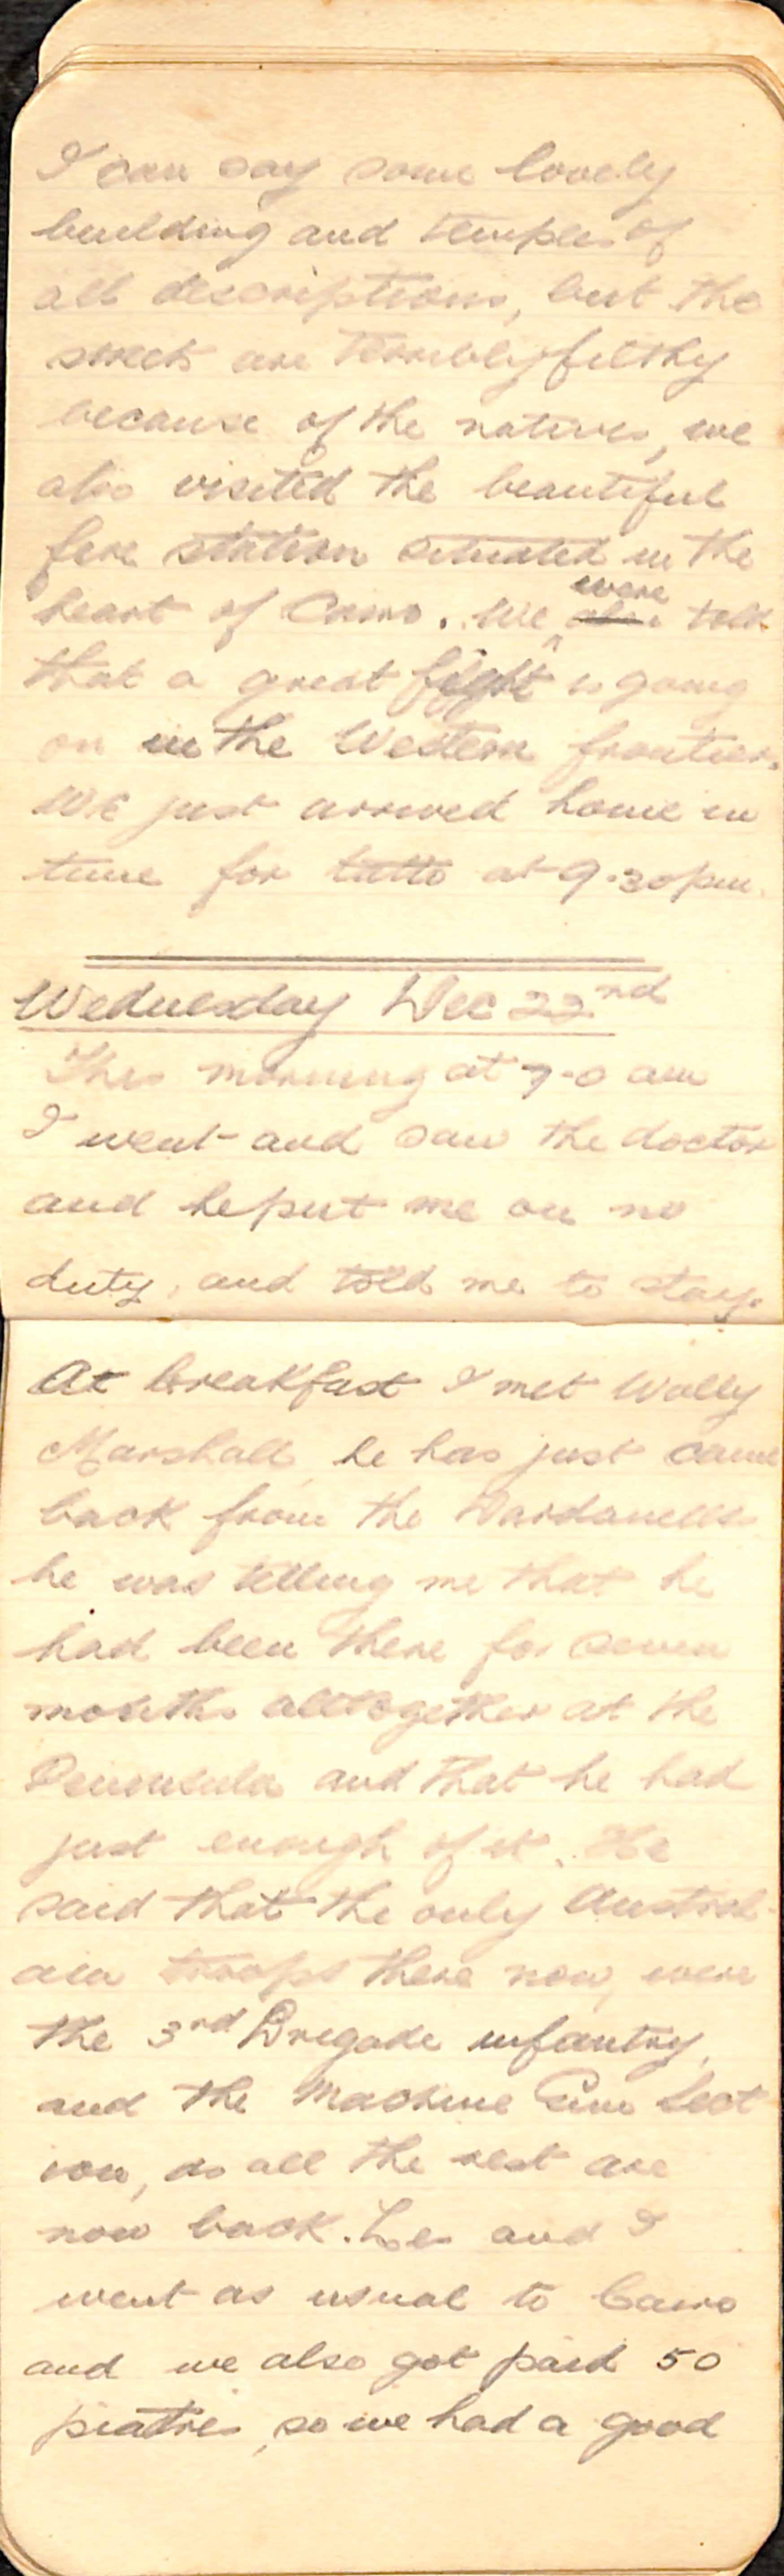 I can say some lovely
building and temples of
all descriptions, but the
streets are terribly filthy
because of the natives, we
also visited the beautiful
fire station situated in the
heart of Cairo. We were told
that a great fight is going
on in the Western frontier.
We just arrived home in
time for tatto at 9.30pm.
Wednesday Dec 22nd
This morning at 7-0 am
I went and saw the doctor
and he put me on no
duty, and told me to stay.
At breakfast I met Wally
Marshall, he has just came
back from the Dardanells
he was telling me that he
had been there for seven
months alltogether at the
Peninsula and that he had
just enough of it. He
said that the only Austral-
ian troops there now, were
the 3rd Brigade infantry,
and the Machine Gun Sect
ion, as all the rest are
now back. Les and I
went as usual to Cairo
and we also got paid 50
piastres, so we had a good